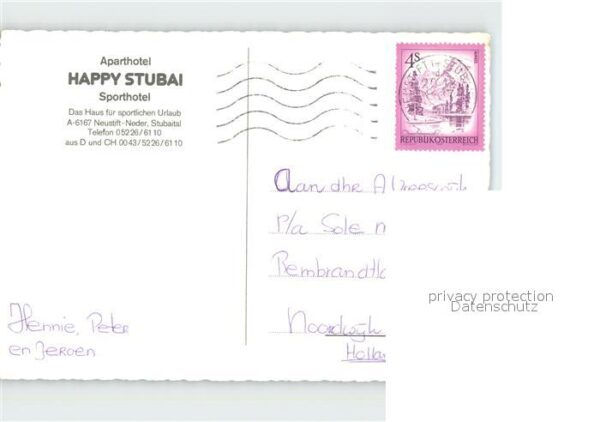 Aparthotel
HAPPY STUBAI
Sporthotel
Das Haus für sportlichen Urlaub
A-6167 Neustift-Neder, Stubaital
Telefon 05226/6110
aus D und CH 0043/5226/6110
4S
REPUBLIK ÖSTERREICH
Aan dhr
P/a Sole
Rembrandtla
Noordwijk
Holla
privacy protection
Datenschutz
Hennie, Peter
en Jeroen